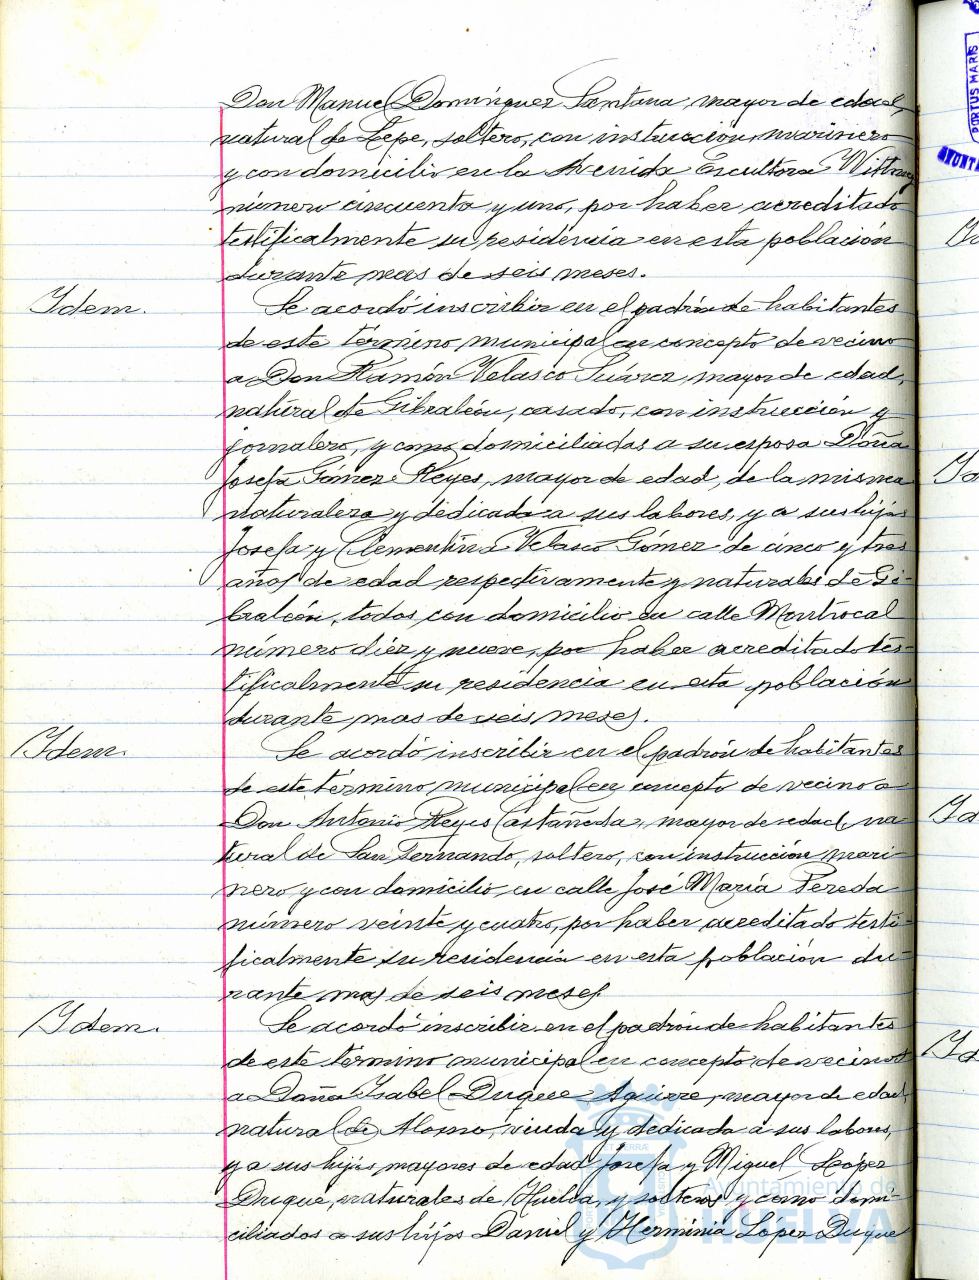 Don Manuel Domínguez Santana, mayor de edad,
natural de Lepe, soltero, con instrucción, marinero
y con domicilio en la Avenida Escultora Witney
número cincuenta y uno, por haber acreditado
testificalmente su residencia en esta población
durante mas de seis meses.
Idem.
Se acordó inscribir en el padrón de habitantes
de este término municipal en concepto de vecino
a Don Ramón Velasco Suárez, mayor de edad,
natural de Gibraleón, casado, con instrucción y
jornalero, y como domiciliados a su esposa Doña
Josefa Gómez Reyes, mayor de edad, de la misma
naturaleza y dedicada a sus labores, y a sus hijos
Josefa y Clementina Velasco Gómez de cinco y tres
años de edad respectivamente y naturales de Gi-
braleón, todos con domicilio en calle Montrocal
número diez y nueve, por haber acreditado tes-
tificalmente su residencia en esta población
durante mas de seis meses.
Idem.
Se acordó inscribir en el padrón de habitantes
de este término municipal en concepto de vecino a
Don Antonio Reyes Castañeda, mayor de edad, na-
tural de San Fernando, soltero, con instrucción mari-
nero y con domicilio en calle José María Pereda
número veinte y cuatro, por haber acreditado testi-
ficalmente su residencia en esta población du-
rante mas de seis meses
Idem.
Se acordó inscribir en el padrón de habitantes
de este término municipal en concepto de vecinos
a Doña Isabel Duque Aguirre, mayor de edad,
natural de Alosno, viuda y dedicada a sus labores,
y a sus hijos mayores de edad Josefa y Miguel López
Duque, naturales de Huelva y solteros y como domi-
ciliados a sus hijos Daniel y Herminia Lopez Duque
Ayuntamiento de
HUELVA
PORTUS MARIS